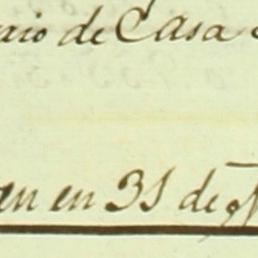 ario de Casa
en en 31 de